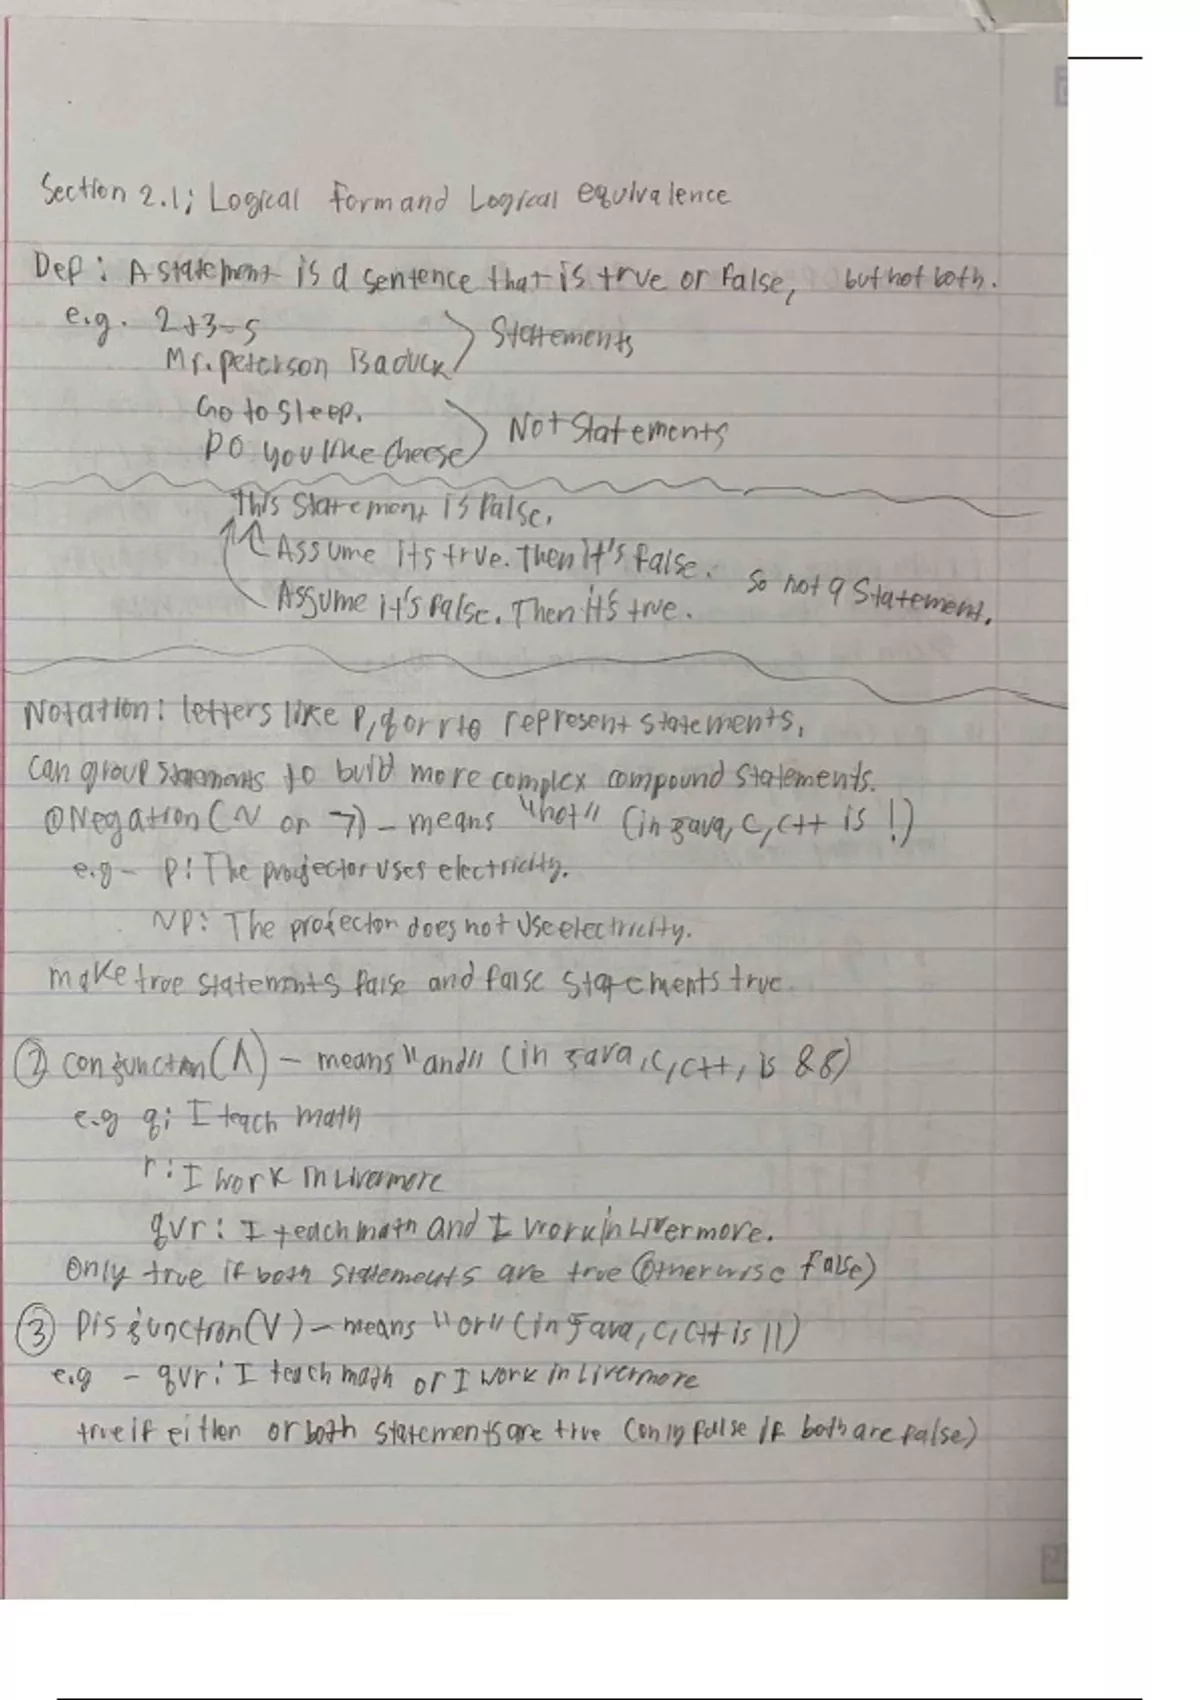 Section 2.1; Logical form and Logical equivalence
Def: A statement is a sentence that is true or false, but not both.
e.g. 2+3=5
Mr. peterson Is a duck
Statements
Go to sleep.
Do you like cheese
Not Statements
This statement is false.
Assume its true. Then it's false.
Assume it's false. Then it's true.
So not a Statement.
Notation: letters like p, q or r to represent statements.
Can group statements to build more complex compound statements.
① Negation (~ or ¬) - means "not" (in java, C, C++ is !)
e.g - p: The projector uses electricity.
~p: The projector does not use electricity.
make true statements false and false statements true
② conjunction (∧) - means "and" (in java, C, C++, is &&)
e.g q: I teach math
r: I work in Livermore
q∨r: I teach math and I work in Livermore.
Only true if both statements are true (otherwise false)
③ Disjunction (∨) - means "or" (in java, C, C++ is ||)
e.g - q∨r: I teach math or I work in Livermore
true if either or both statements are true (only false if both are false)